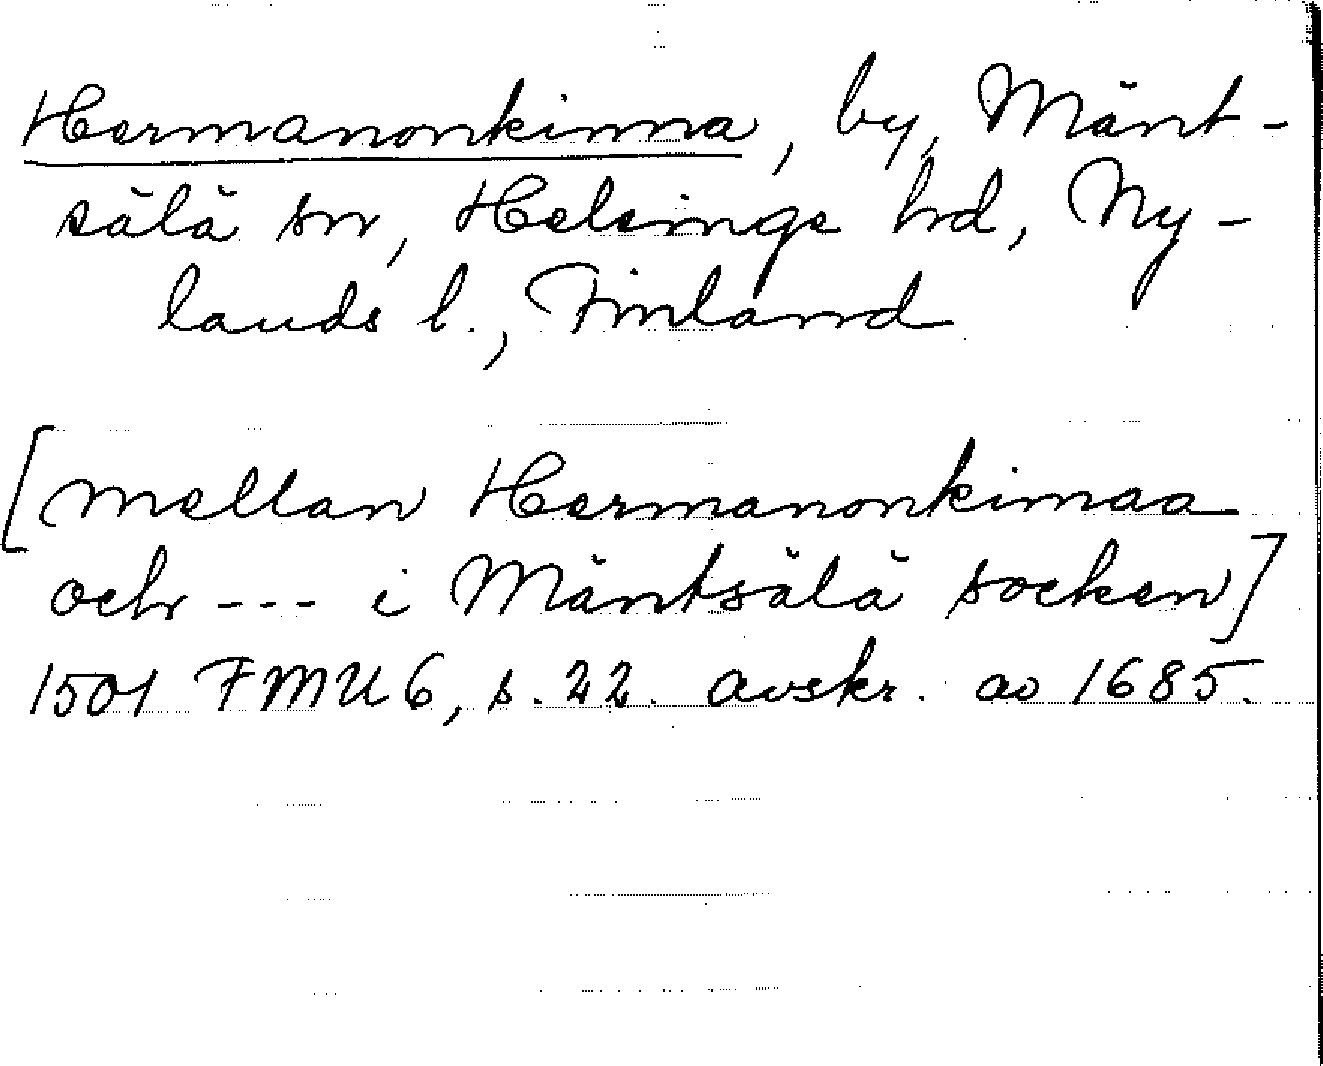 Hermanonkinna, by, Mänt-
sälä sn, Helsinge hd, Ny-
lands l., Finland
[mellan Hermanonkimaa
och --- i Mäntsälä socken]
1501 FMU 6, s. 22. avskr. av 1685.